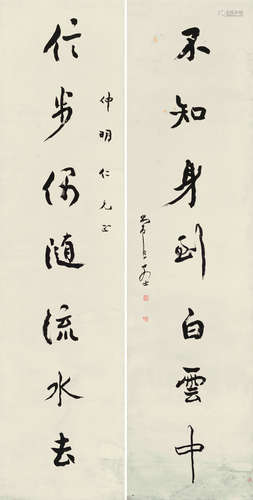 不知身到白雲中
仲明仁兄正
信步偶隨流水去